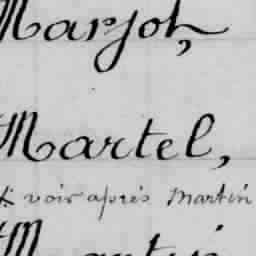 Marjot,
Martel,
voir après Martin